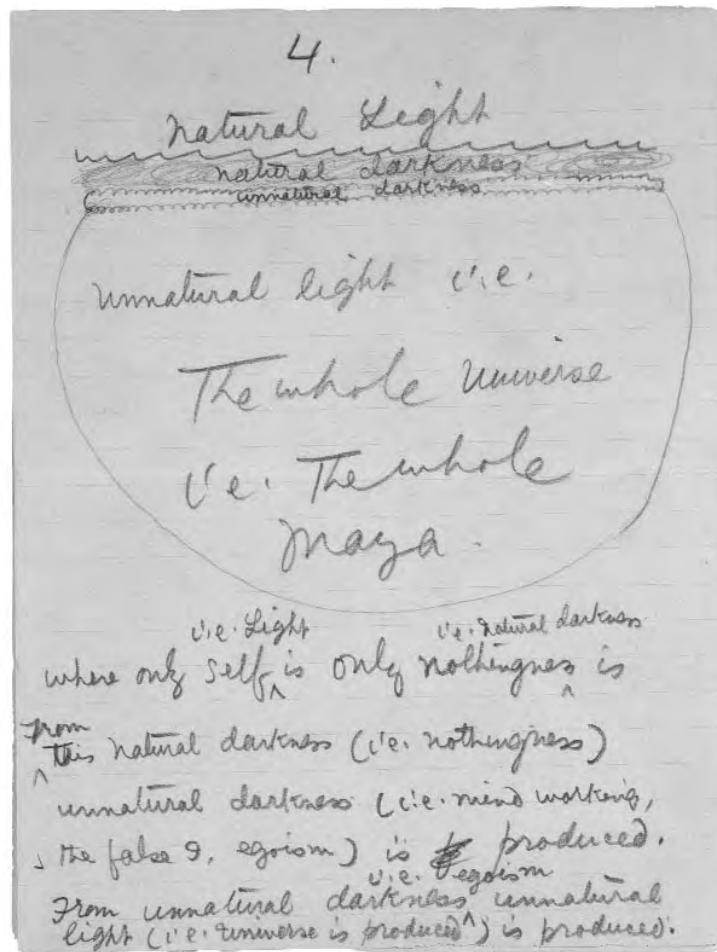 4.
Natural Light
natural darkness
unnatural darkness
unnatural light i.e.
The whole universe
i.e. The whole
Maya.
i.e. Light i.e. natural darkness
where only Self ^ is only nothingness ^ is
From
^ this natural darkness (i.e. nothingness)
unnatural darkness (i.e. mind working,
the false I, egoism) is produced.
i.e. egoism
From unnatural darkness ^ unnatural
light (i.e. universe is produced ^) is produced.